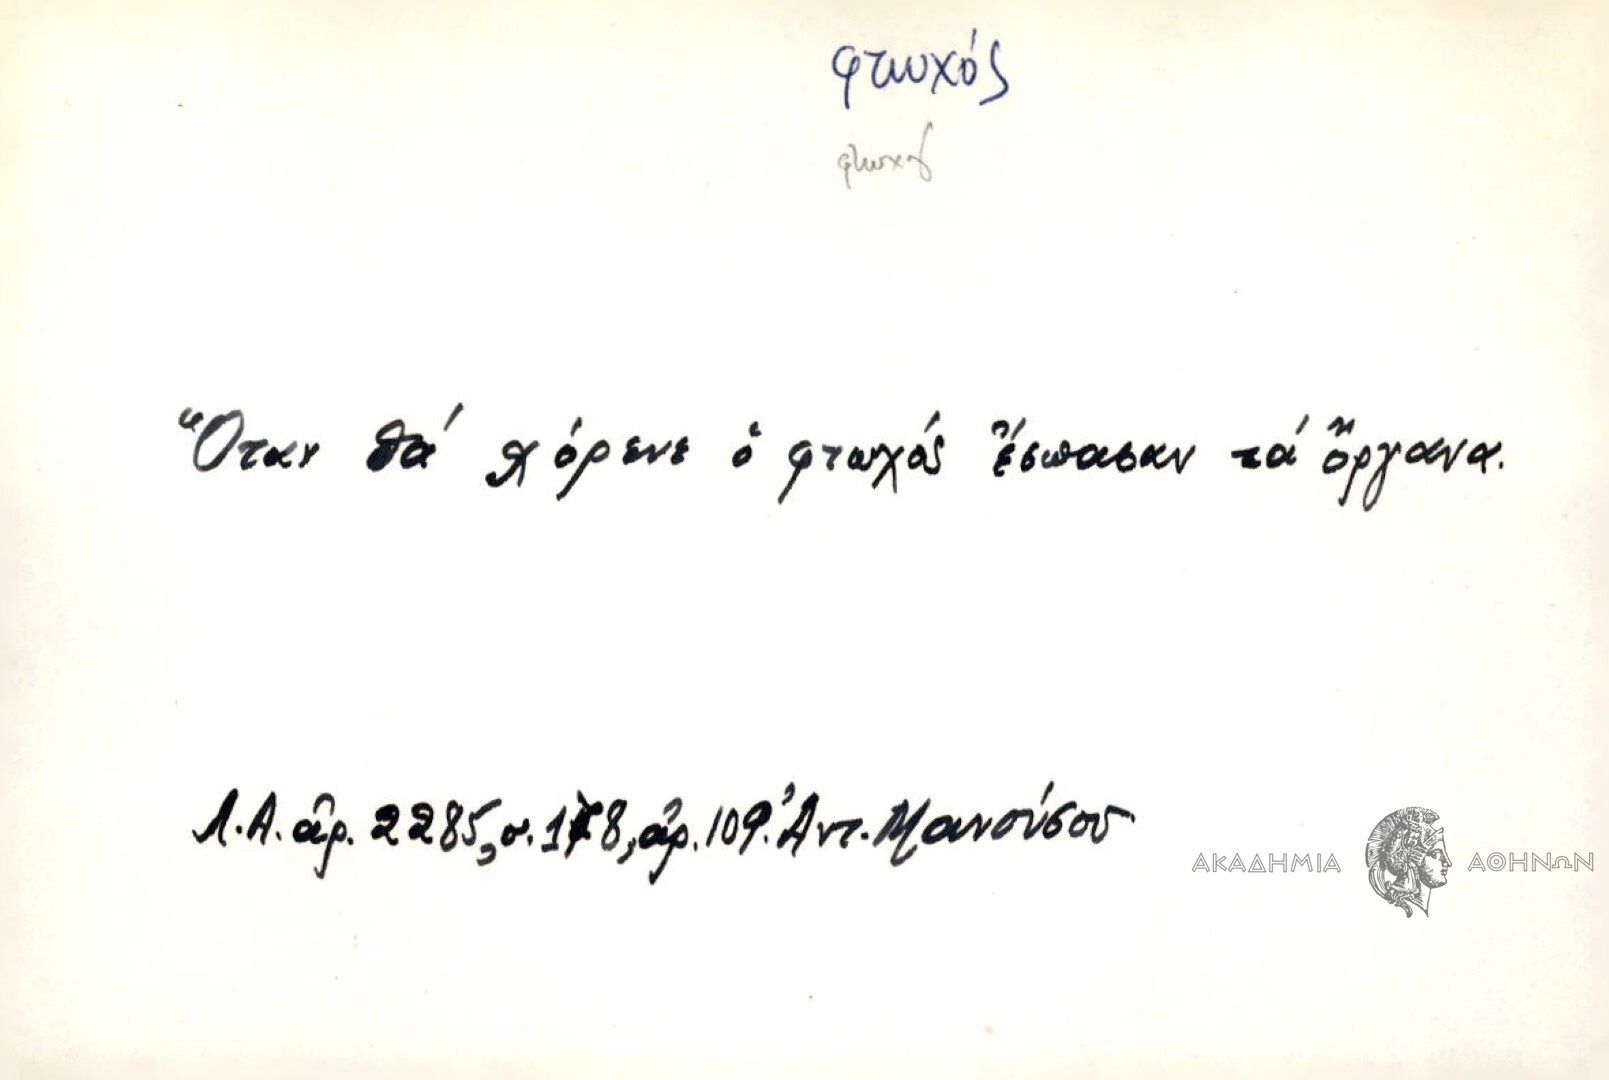 φτωχός
φτωχός
Ὅταν θά χόρενε ὁ φτωχός ἔσπασαν τά ὄργανα.
Λ.Α. ἀρ. 2285, σ. 178, ἀρ. 109. Ἀντ. Μανσύσου
ΑΚΑΔΗΜΙΑ ΑΘΗΝΩΝ